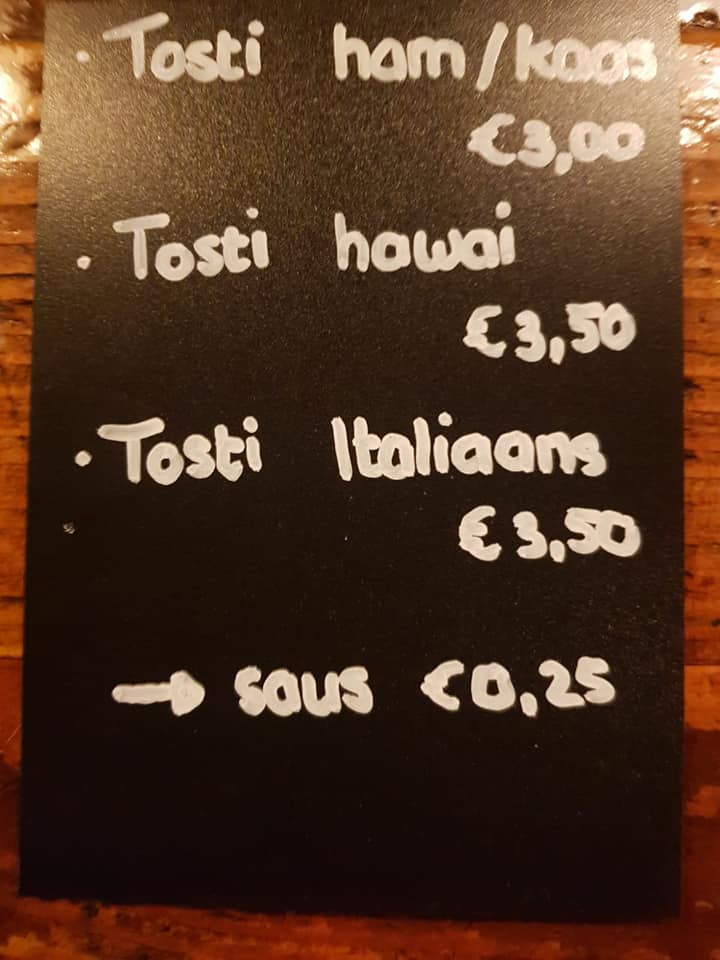 · Tosti ham/kaas
€3,00
· Tosti hawai
€3,50
· Tosti Italiaans
€3,50
→ saus €0,25